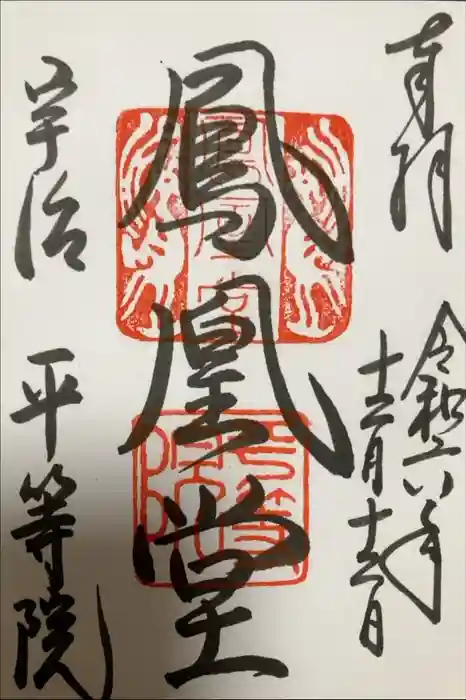 奉拝
令和六年
十二月十二日
鳳凰堂
宇治 平等院